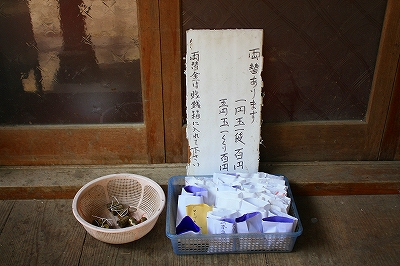 両替あります
一円玉一袋 百円
五円玉一くくり百円
両替金は賽銭箱に入れて下さい